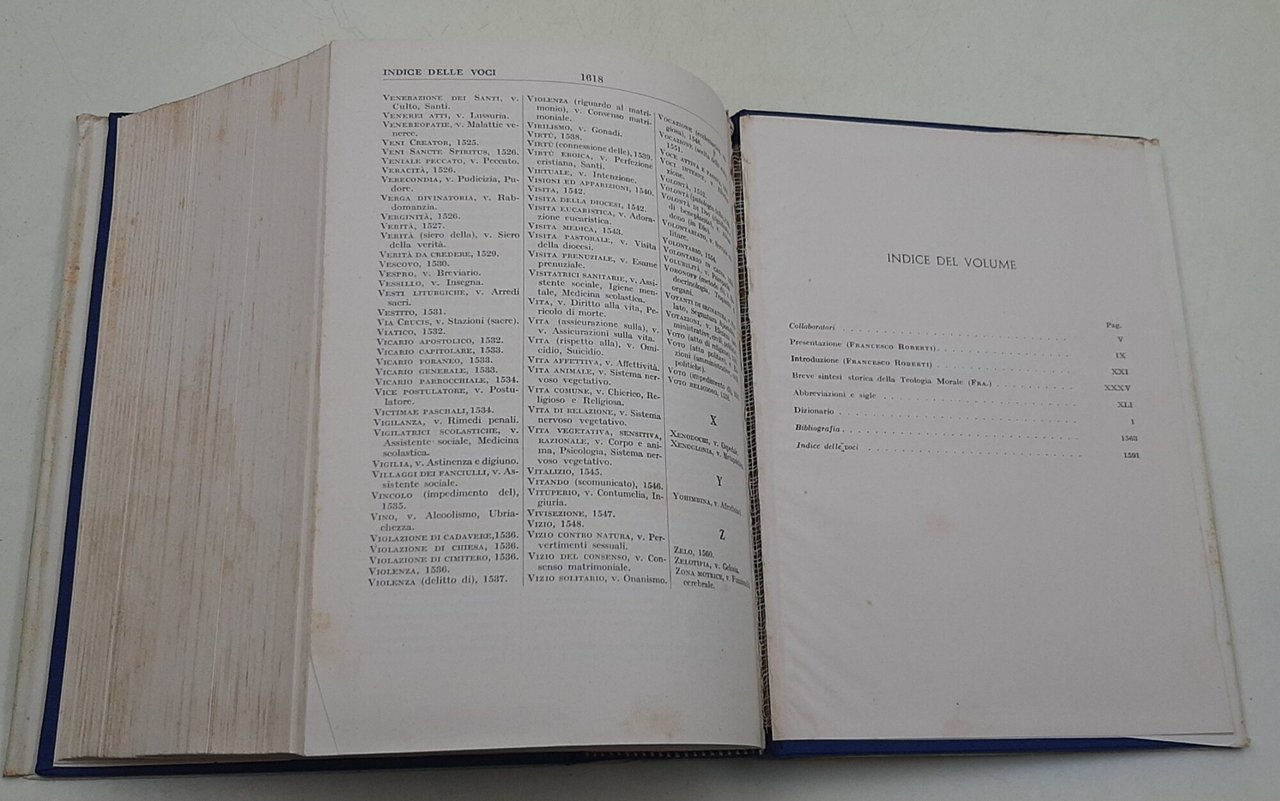 INDICE DELLE VOCI
1618
VENERAZIONE DEI SANTI, v.
Culto, Santi.
VENEREI ATTI, v. Lussuria.
VENEREOPATIE, v. Malattie ve-
neree.
VENI CREATOR, 1525.
VENI SANCTE SPIRITUS, 1526.
VENIALE PECCATO, v. Peccato.
VERACITÀ, 1526.
VERECONDIA, v. Pudicizia, Pu-
dore.
VERGA DIVINATORIA, v. Rab-
domanzia.
VERGINITÀ, 1526.
VERITÀ, 1527.
VERITÀ (siero della), v. Siero
della verità.
VERITÀ DA CREDERE, 1529.
VESCOVO, 1530.
VESPRO, v. Breviario.
VESSILLO, v. Insegna.
VESTI LITURGICHE, v. Arredi
sacri.
VESTITO, 1531.
VIA CRUCIS, v. Stazioni (sacre).
VIATICO, 1532.
VICARIO APOSTOLICO, 1532.
VICARIO CAPITOLARE, 1533.
VICARIO FORANEO, 1533.
VICARIO GENERALE, 1533.
VICARIO PARROCCHIALE, 1534.
VICE POSTULATORE, v. Postu-
latore.
VICTIMAE PASCHALI, 1534.
VIGILANZA, v. Rimedi penali.
VIGILATRICI SCOLASTICHE, v.
Assistente sociale, Medicina
scolastica.
VIGILIA, v. Astinenza e digiuno.
VILLAGGI DEI FANCIULLI, v. As-
sistente sociale.
VINCOLO (impedimento del),
1535.
VINO, v. Alcoolismo, Ubria-
chezza.
VIOLAZIONE DI CADAVERE, 1536.
VIOLAZIONE DI CHIESA, 1536.
VIOLAZIONE DI CIMITERO, 1536.
VIOLENZA, 1536.
VIOLENZA (delitto di), 1537.
VIOLENZA (riguardo al matri-
monio), v. Consenso matri-
moniale.
VIRILISMO, v. Gonadi.
VIRTÙ, 1537.
VIRTÙ (connessione delle), 1539.
VIRTÙ EROICA, v. Perfezione
cristiana, Santi.
VIRTUALE, v. Intenzione.
VISIONI ED APPARIZIONI, 1540.
VISITA, 1542.
VISITA DELLA DIOCESI, 1542.
VISITA EUCARISTICA, v. Adora-
zione eucaristica.
VISITA MEDICA, 1543.
VISITA PASTORALE, v. Visita
della diocesi.
VISITA PRENUZIALE, v. Esame
prenuziale.
VISITATRICI SANITARIE, v. Assi-
stente sociale, Igiene men-
tale, Medicina scolastica.
VITA, v. Diritto alla vita, Pe-
ricolo di morte.
VITA (assicurazione sulla), v.
v. Assicurazioni sulla vita.
VITA (rispetto alla), v. Omi-
cidio, Suicidio.
VITA AFFETTIVA, v. Affettività.
VITA ANIMALE, v. Sistema ner-
voso vegetativo.
VITA COMUNE, v. Chierico, Re-
ligioso e Religiosa.
VITA DI RELAZIONE, v. Sistema
nervoso vegetativo.
VITA VEGETATIVA, SENSITIVA,
RAZIONALE, v. Corpo e ani-
ma, Psicologia, Sistema ner-
voso vegetativo.
VITALIZIO, 1545.
VITANDO (scomunicato), 1546.
VITUPERIO, v. Contumelia, In-
giuria.
VIVISEZIONE, 1547.
VIZIO, 1548.
VIZIO CONTRO NATURA, v. Per-
vertimenti sessuali.
VIZIO DEL CONSENSO, v. Con-
senso matrimoniale.
VIZIO SOLITARIO, v. Onanismo.
VOCAZIONE
giosa), 1548.
VOCAZIONE (scelta
1551.
VOCE ATTIVA E
VOCI INTERNE, v.
VOLONTÀ, 1552.
VOLONTÀ (patologia
VOLONTÀ DI DIO
di beneplacito), v.
dono (in Dio).
VOLONTARIATO, v.
litare.
VOLONTARIO, 1554.
VOLONTARIO IN CAUSA,
VOLUBILITÀ, v.
VORONOFF (metodo di), v.
docrinologia,
organi.
VOTANTI DI SEGNATURA, v.
lato, Segnatura
VOTAZIONI, v.
ministrative,
VOTO (atto di religione),
VOTO (atto politico), v.
zioni (amministrative
politiche).
VOTO (impedimento di),
VOTO RELIGIOSO,
X
XENODOCHI, v.
XENOGLONIA, v.
Y
YOHIMBINA, v. Afrodisiaci
Z
ZELO, 1560.
ZELOTIPIA, v. Gelosia.
ZONA MOTRICE, v.
cerebrale.
INDICE DEL VOLUME
Pag.
Collaboratori V
Presentazione (FRANCESCO ROBERTI) IX
Introduzione (FRANCESCO ROBERTI) XXI
Breve sintesi storica della Teologia Morale (FRA.) XXXV
Abbreviazioni e sigle XLI
Dizionario 1
Bibliografia 1563
Indice delle voci 1591